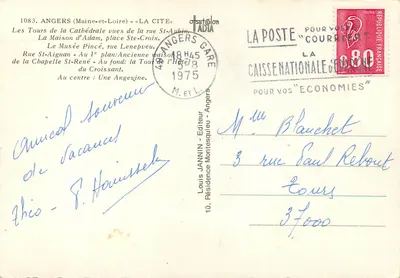 1083. ANGERS (Maine-et-Loire) - «LA CITE»
Les Tours de la Cathédrale vues de la rue St-Aubin
La Maison d'Adam, place Ste-Croix.
Le Musée Pincé, rue Lenepveu.
Rue St-Aignan - Au 1er plan: Ancienne
de la Chapelle St-René - Au fond: la Tour
du Croissant.
Au centre : Une Angevine.
Amical souvenir
de vacances
Louis JANNIN - Editeur
10, Résidence Montesquieu - Angers
49 ANGERS GARE
18H45
1975
M. et L.
LA POSTE POUR VOTRE
"COURRIER"
LA
CAISSE NATIONALE d'E
POUR VOS "ECONOMIES"
0.80
Mme Blanchet
3 rue Paul Rebout
Tours
37000